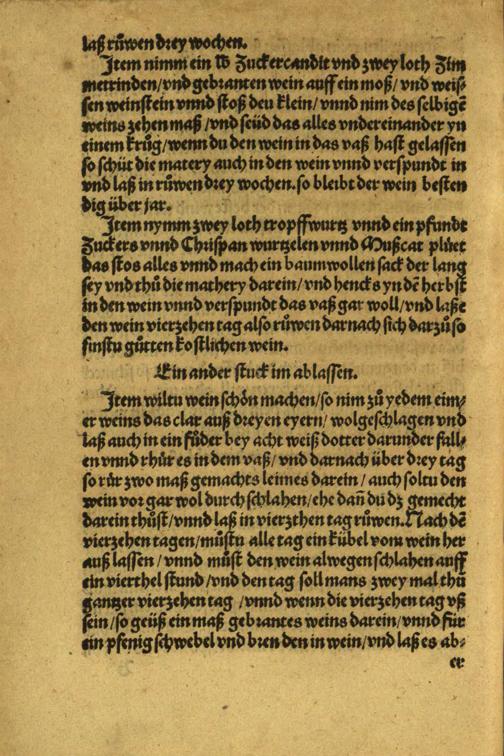 laß růwen drey wochen.
Item nimm ein ℔ Zuckercandit vnd zwey loth Zim
metrinden/vnd gebranten wein auff ein moß/ vnd weis-
sen weinstein vnnd stoß den klein/ vnnd nim des selbigē
weins zehen maß /vnd seüd das alles vndereinander yn
einem krůg/wenn du den wein in das vaß hast gelassen
so schüt die matery auch in den wein vnnd verspundt in
vnd laß in růwen drey wochen. so bleibt der wein besten
dig über jar.
Item nymm zwey loth tropffwurtz vnnd ein pfundt
Zuckers vnnd Chrispan wurtzelen vnnd Mußcat plüet
das stos alles vnnd mach ein baumwollen sack der lang
sey vnd thů die mathery darein/vnd hencks yn dē herbst
in den wein vnnd verspundt das vaß gar woll/vnd laße
den wein vierzehen tag also růwen darnach sich darzů so
finstu gůtten kostlichen wein.
Ein ander stuck im ablassen.
Item wiltu wein schön machen/so nim zů yedem eim-
er weins das clar auß dreyen eyern/ wolgeschlagen vnd
laß auch in ein fůder bey acht weiß dotter darunder fall-
en vnnd rhůr es in dem vaß/ vnd darnach über drey tag
so růr zwo maß gemachts leimes darein / auch soltu den
wein vor gar wol durch schlahen/ehe dañ du dz gemecht
darein thůst/vnnd laß in vierzthen tag růwen.Nach dē
vierzehen tagen/můstu alle tag ein kübel vom wein her
auß lassen / vnnd můst den wein alwegen schlahen auff
ein vierthel stund /vnd den tag soll mans zwey mal thů
gantzer vierzehen tag /vnnd wenn die vierzehen tag vß
sein/so geüß ein maß gebrantes weins darein/vnnd für
ein pfenig schwebel vnd bren den in wein/vnd laß es ab-
er